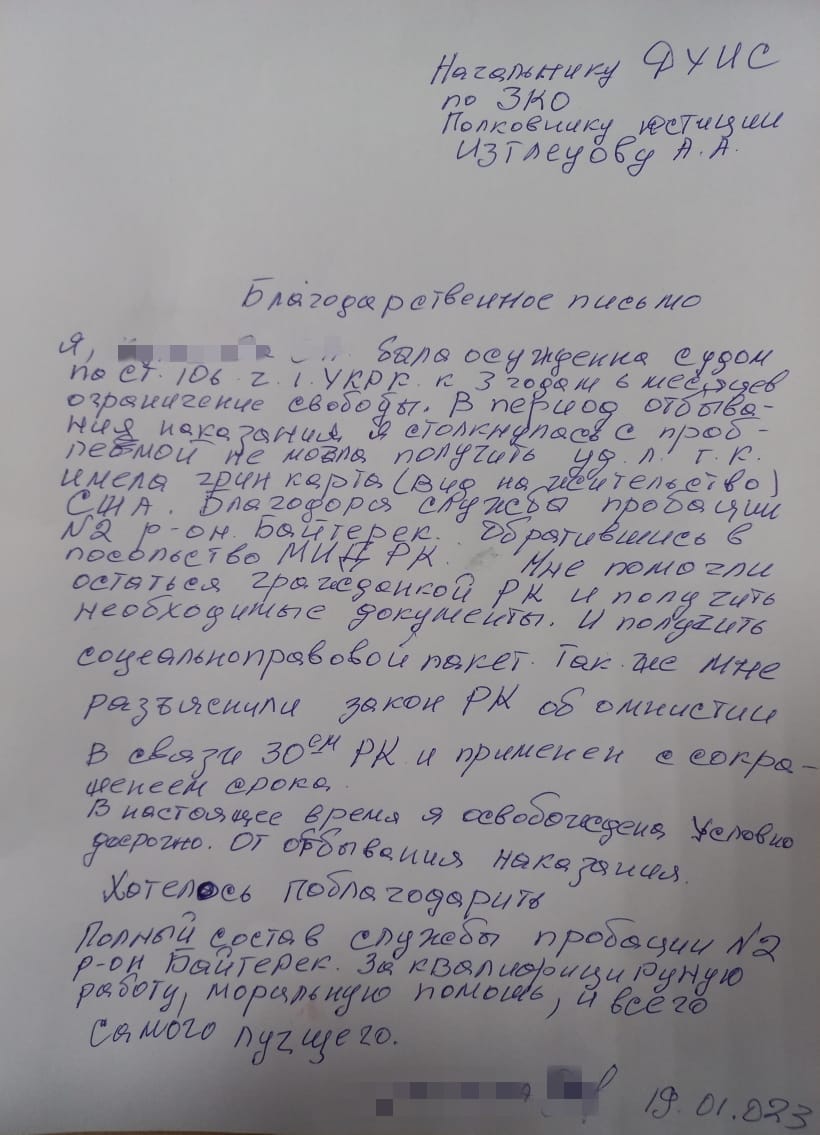 Начальнику ДУИС
по ЗКО
Полковнику юстиции
Изтлеуову А.А.
Благодарственное письмо
Я, была осужденна судом
по ст. 106 ч. 1. УКРК. к 3 годам 6 месяцев
ограничение свободы. В период отбыва-
ния наказания я столкнулась с проб-
лемой не могла получить уд. л. т. к.
имела грин карта (вид на жительство)
США. Благодоря служба пробации
N2 р-он. Байтерек. Обратившись в
посольство МИД РК. Мне помогли
остаться гражданкой РК и получить
необходимые документы. И получить
социальноправовой пакет. Так же мне
разъяснили закон РК об омнистии
В связи 30ем РК и применен с сокра-
щением срока.
В настоящее время я освобождена Условно
досрочно. От отбывания наказания.
Хотелось поблагодарить
Полный состав службы пробации N2
р-он Байтерек. За квалифицируную
работу, моральную помошь, и всего
самого лучщего.
19.01.023